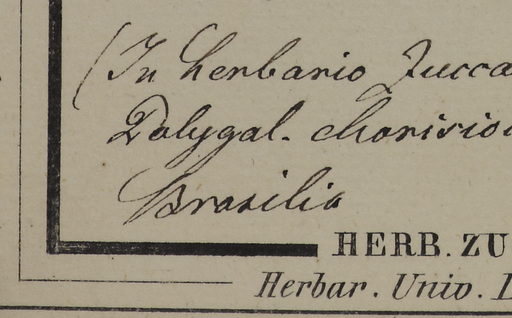 (In herbario Zucca
Polygal. chorisio
Brasilia
HERB. ZU
Herbar. Univ. L